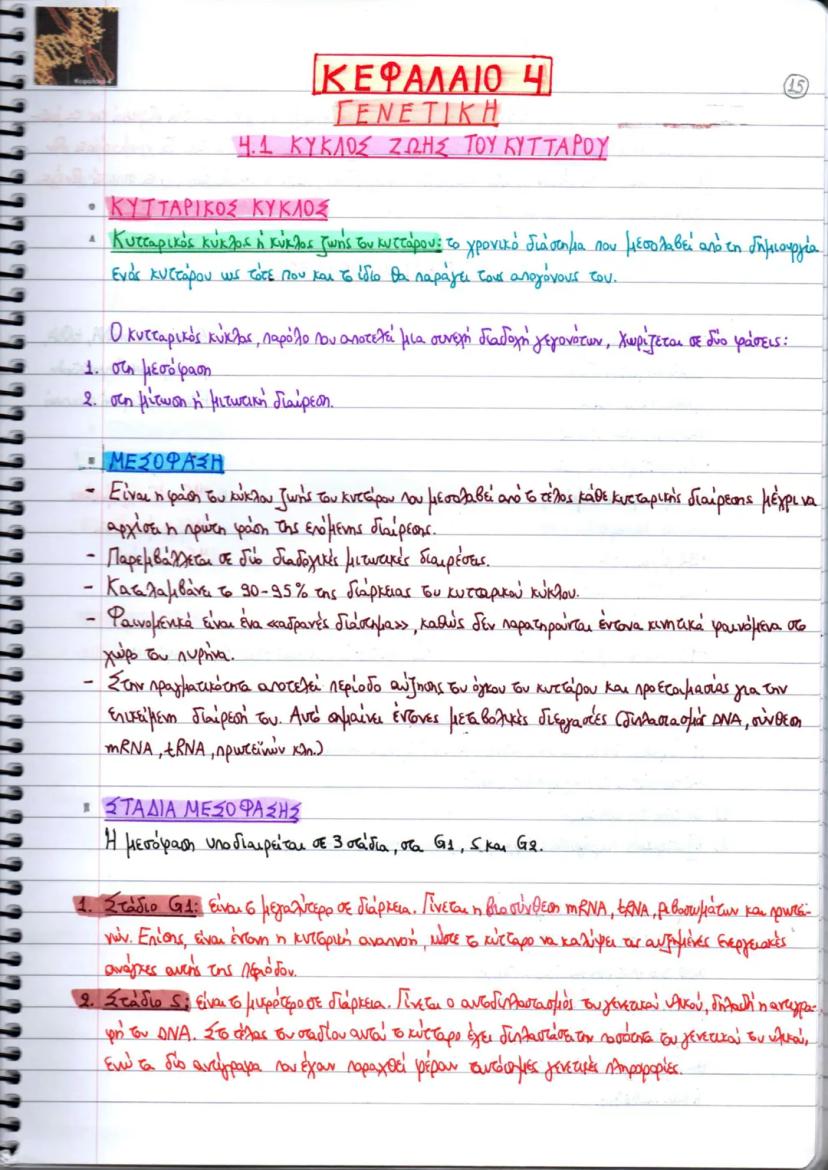 Κεφάλαιο 4
15
ΚΕΦΑΛΑΙΟ 4
ΓΕΝΕΤΙΚΗ
4.1 ΚΥΚΛΟΣ ΖΩΗΣ ΤΟΥ ΚΥΤΤΑΡΟΥ
ΚΥΤΤΑΡΙΚΟΣ ΚΥΚΛΟΣ
Κυτταρικός κύκλος ή κύκλος ζωής του κυττάρου: το χρονικό διάστημα που μεσολαβεί από τη δημιουργία
ενός κυττάρου ως τότε που και το ίδιο θα παράγει τους απογόνους του.
Ο κυτταρικός κύκλος, παρόλο που αποτελεί μια συνεχή διαδοχή γεγονότων, χωρίζεται σε δύο φάσεις:
1. στη μεσόφαση
2. στη μίτωση ή μιτωτική διαίρεση.
ΜΕΣΟΦΑΣΗ
- Είναι η φάση του κύκλου ζωής του κυττάρου που μεσολαβεί από το τέλος κάθε κυτταρικής διαίρεσης μέχρι να
αρχίσει η πρώτη φάση της επόμενης διαίρεσης.
- Παρεμβάλλεται σε δύο διαδοχικές μιτωτικές διαιρέσεις.
- Καταλαμβάνει το 90-95% της διάρκειας του κυτταρικού κύκλου.
- Φαινομενικά είναι ένα «αδρανές διάστημα», καθώς δεν παρατηρούνται έντονα κινητικά φαινόμενα στο
χώρο του πυρήνα.
- Στην πραγματικότητα αποτελεί περίοδο αύξησης του όγκου του κυττάρου και προετοιμασίας για την
επικείμενη διαίρεσή του. Αυτό σημαίνει έντονες μεταβολικές διεργασίες (διπλασιασμός DNA, σύνθεση
mRNA, tRNA, πρωτεϊνών κλπ.)
ΣΤΑΔΙΑ ΜΕΣΟΦΑΣΗΣ
Η μεσόφαση υποδιαιρείται σε 3 στάδια, στα G1, S και G2.
1. Στάδιο G1: είναι το μεγαλύτερο σε διάρκεια. Γίνεται η βιοσύνθεση mRNA, tRNA, ριβοσωμάτων και πρωτεϊ-
νών. Επίσης, είναι έντονη η κυτταρική αναπνοή, ώστε το κύτταρο να καλύψει τις αυξημένες ενεργειακές
ανάγκες αυτής της περιόδου.
2. Στάδιο S: είναι το μικρότερο σε διάρκεια. Γίνεται ο αυτοδιπλασιασμός του γενετικού υλικού, δηλαδή η αντιγρα-
φή του DNA. Στο τέλος του σταδίου αυτού το κύτταρο έχει διπλασιάσει την ποσότητα του γενετικού του υλικού,
ενώ τα δύο αντίγραφα που έχουν παραχθεί φέρουν ταυτόσημες γενετικές πληροφορίες.